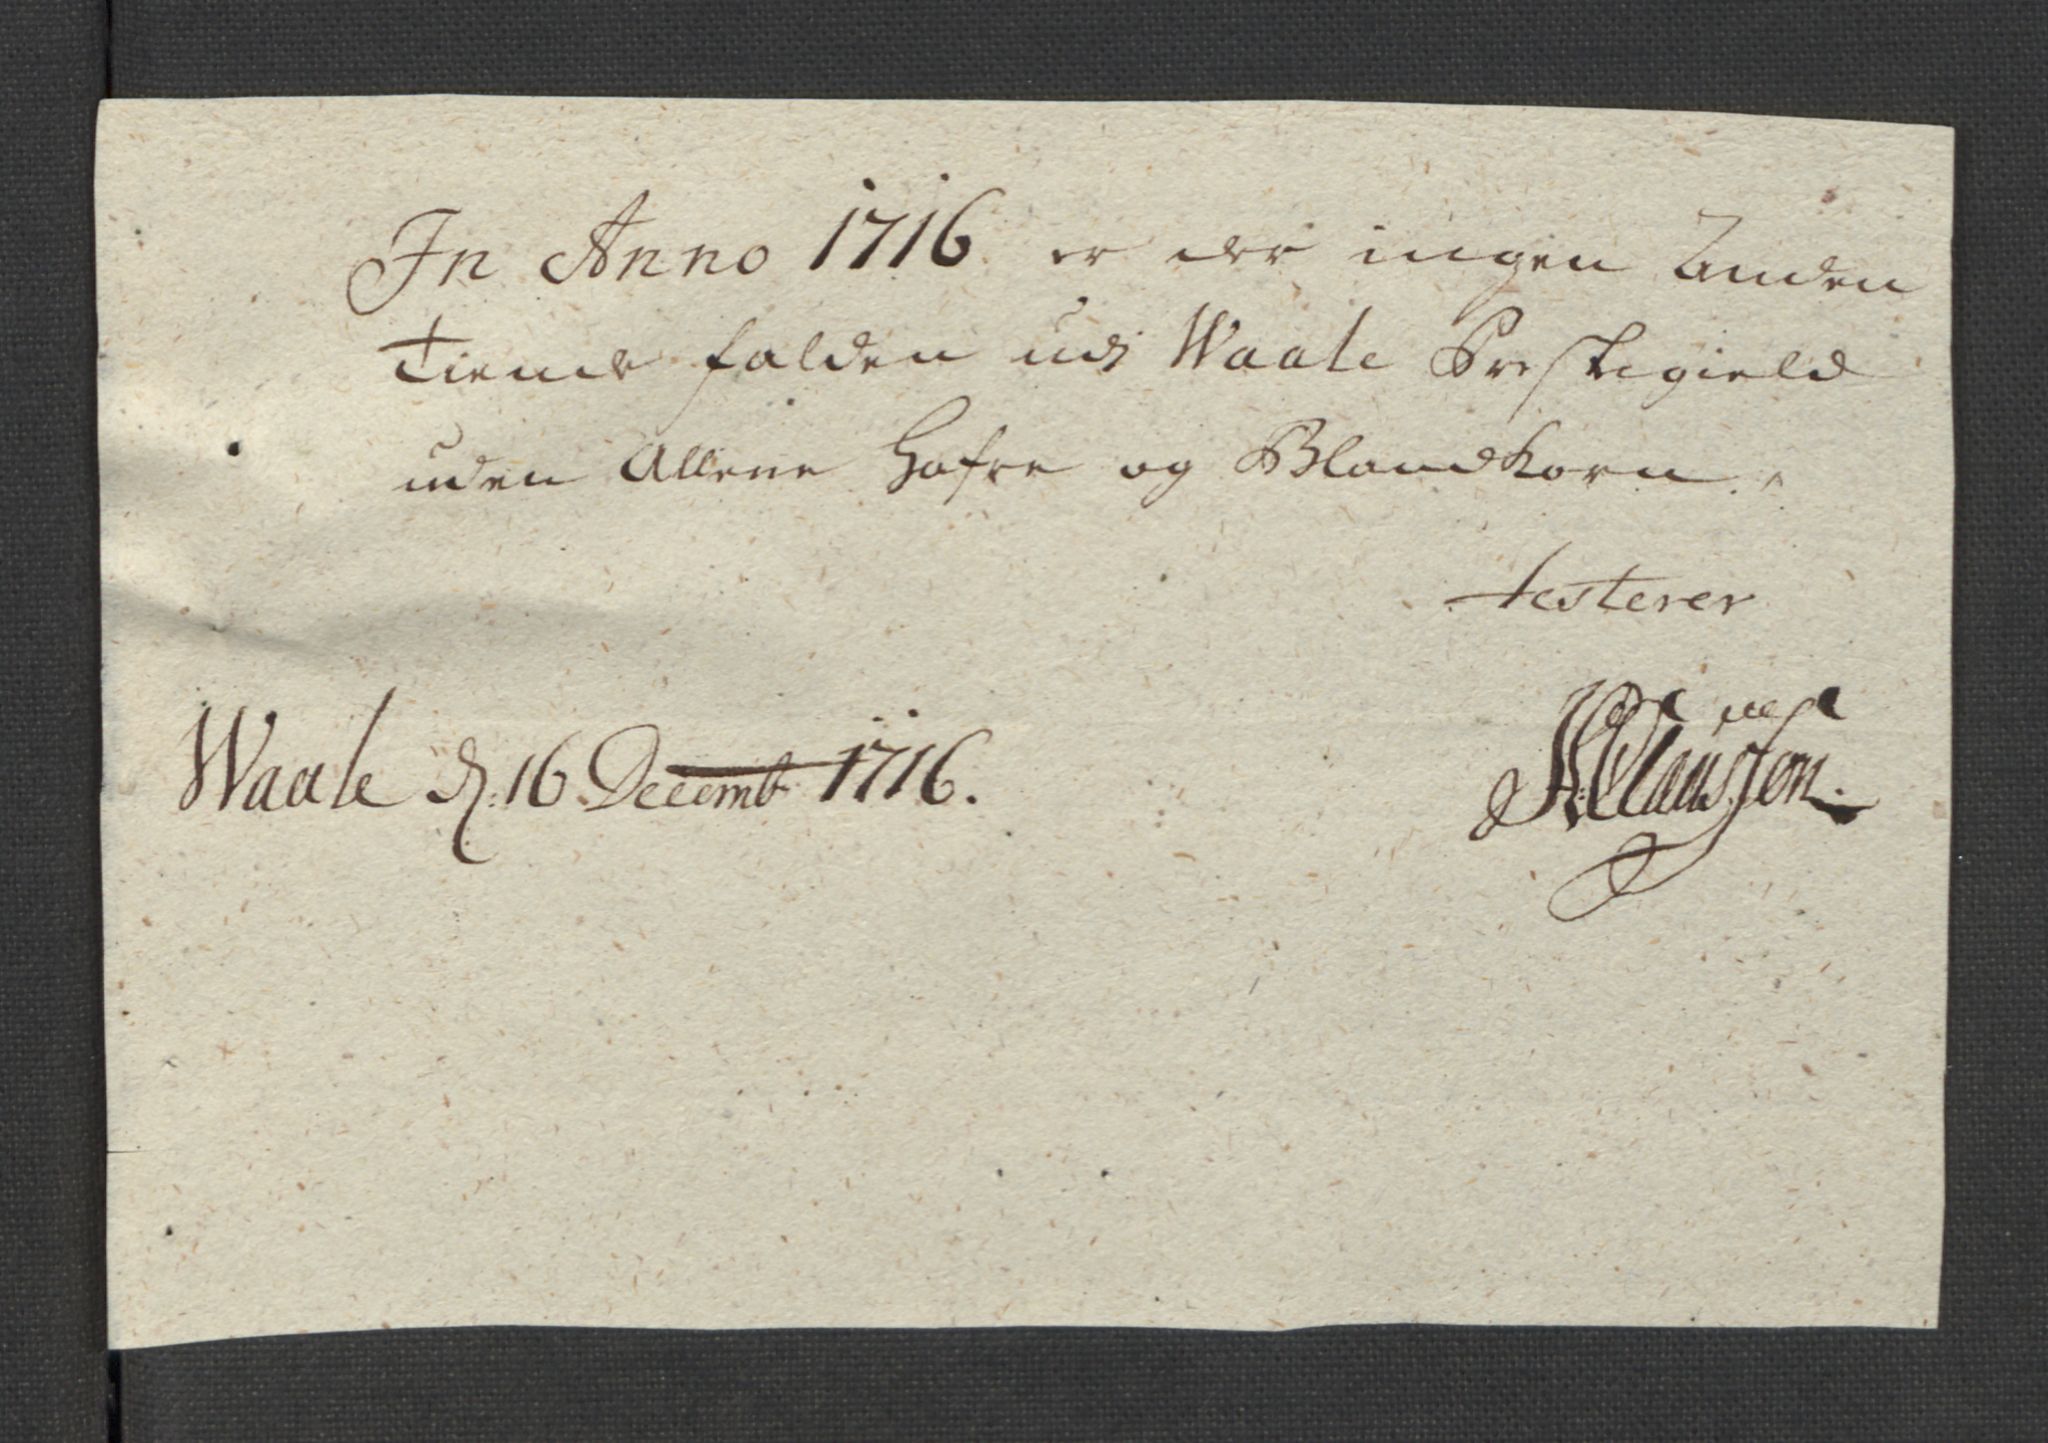 In Anno 1716 er der ingen Anden
Tiende falden udj Waale Prestegield
uden Allene Hafre og Blandkorn.
testerer
Waale d: 16 Decemb 1716.
Claussøn